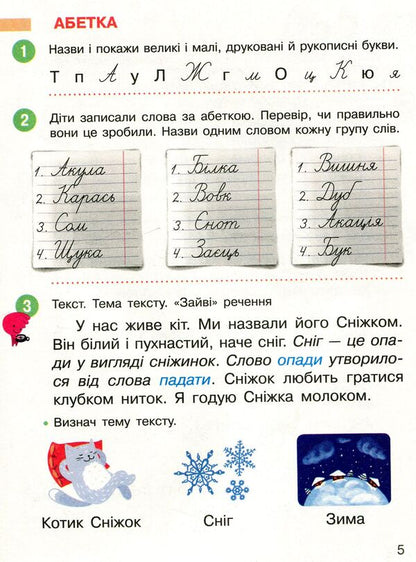 АБЕТКА
1 Назви і покажи великі і малі, друковані й рукописні букви.
Т п А у Л Ж г м О ц К ю я
2 Діти записали слова за абеткою. Перевір, чи правильно
вони це зробили. Назви одним словом кожну групу слів.
1. Акула
2. Карась
3. Сом
4. Щука
1. Білка
2. Вовк
3. Єнот
4. Заєць
1. Вишня
2. Дуб
3. Акація
4. Бук
3 Текст. Тема тексту. «Зайві» речення
У нас живе кіт. Ми назвали його Сніжком.
Він білий і пухнастий, наче сніг. Сніг — це опа-
ди у вигляді сніжинок. Слово опади утворило-
ся від слова падати. Сніжок любить гратися
клубком ниток. Я годую Сніжка молоком.
• Визнач тему тексту.
Котик Сніжок
Сніг
Зима
5